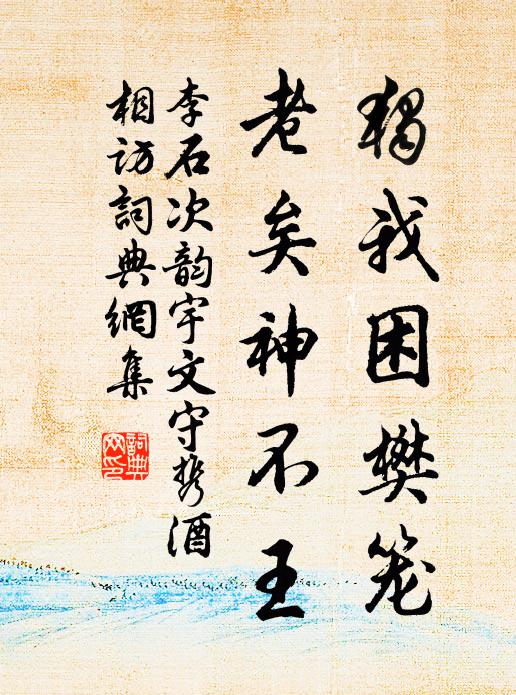 獨我困樊笼
老矣神不王
李石次韵宇文守携酒
相访詞典網集
詞典
网印